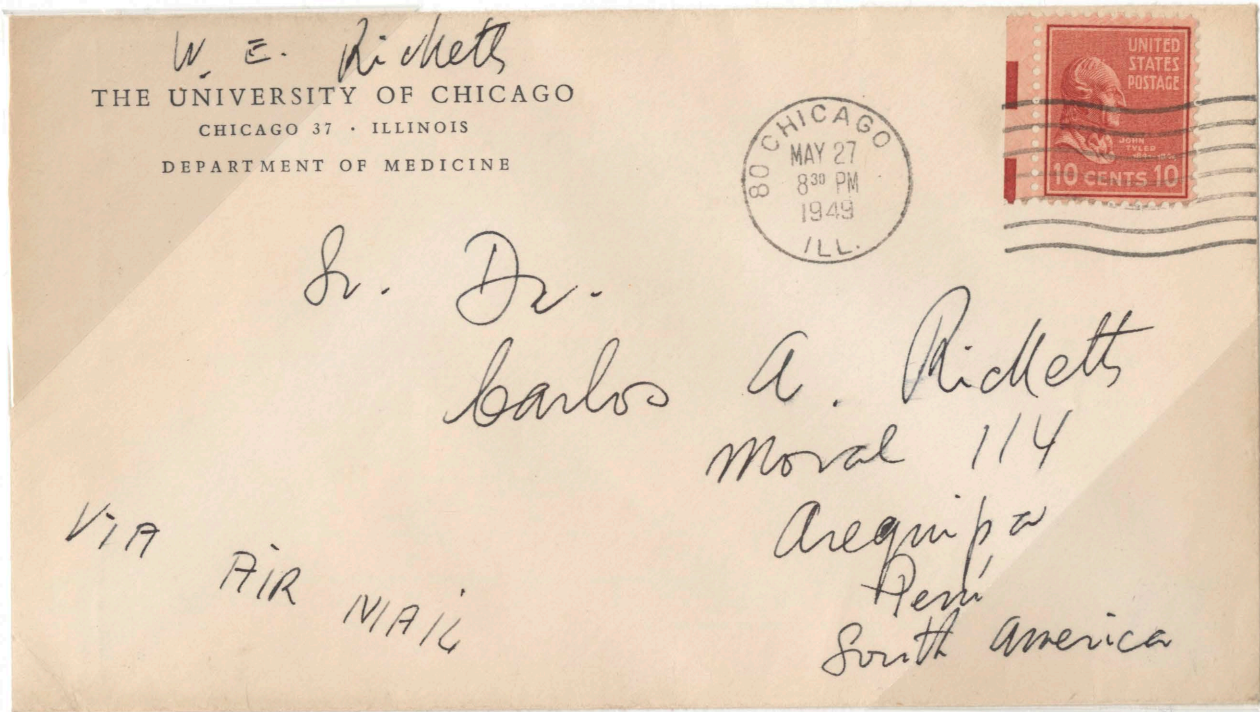 W. E. Ricketts
THE UNIVERSITY OF CHICAGO
CHICAGO 37 · ILLINOIS
DEPARTMENT OF MEDICINE
80 CHICAGO
MAY 27
8³⁰ PM
1949
ILL.
UNITED
STATES
POSTAGE
JOHN
TYLER
10 CENTS 10
Sr. Dr.
Carlos A. Ricketts
Moral 114
Arequipa
Perú
South America
VIA AIR MAIL